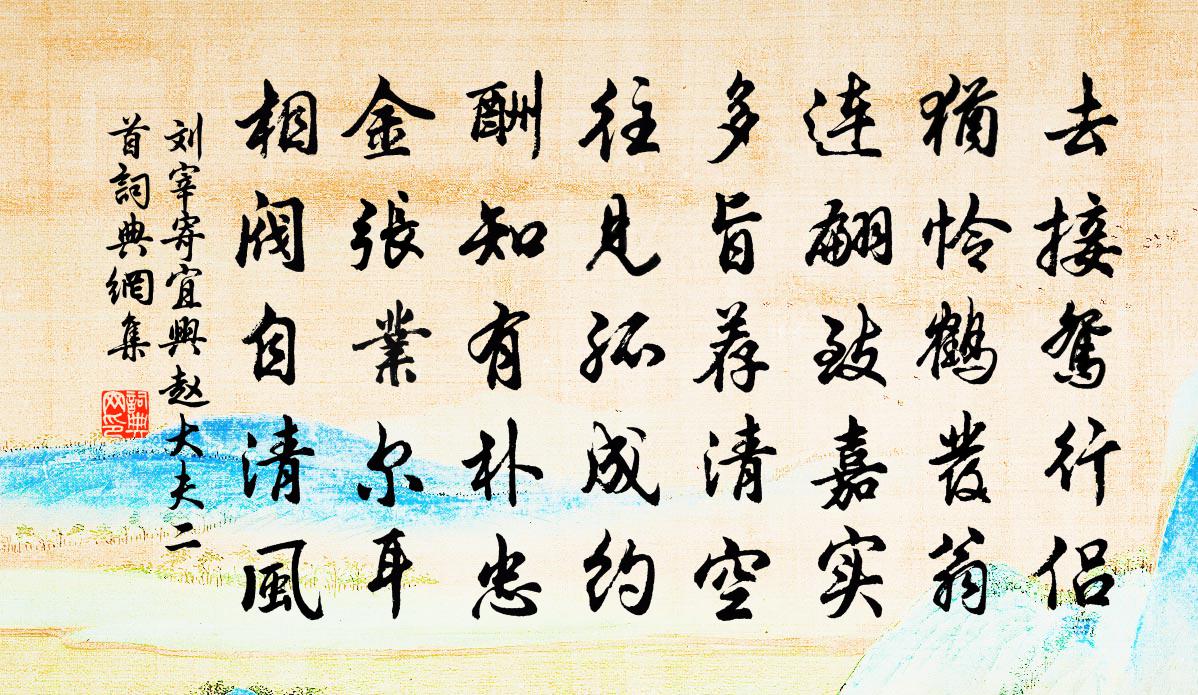 去接鸳行侣
犹怜鹤发翁
连翩致嘉实
多旨荐清空
往见孤成约
酬知有朴忠
金張業尔耳
相阀自清風
刘宰寄宜興赵大夫二
首詞典網集
詞典網印